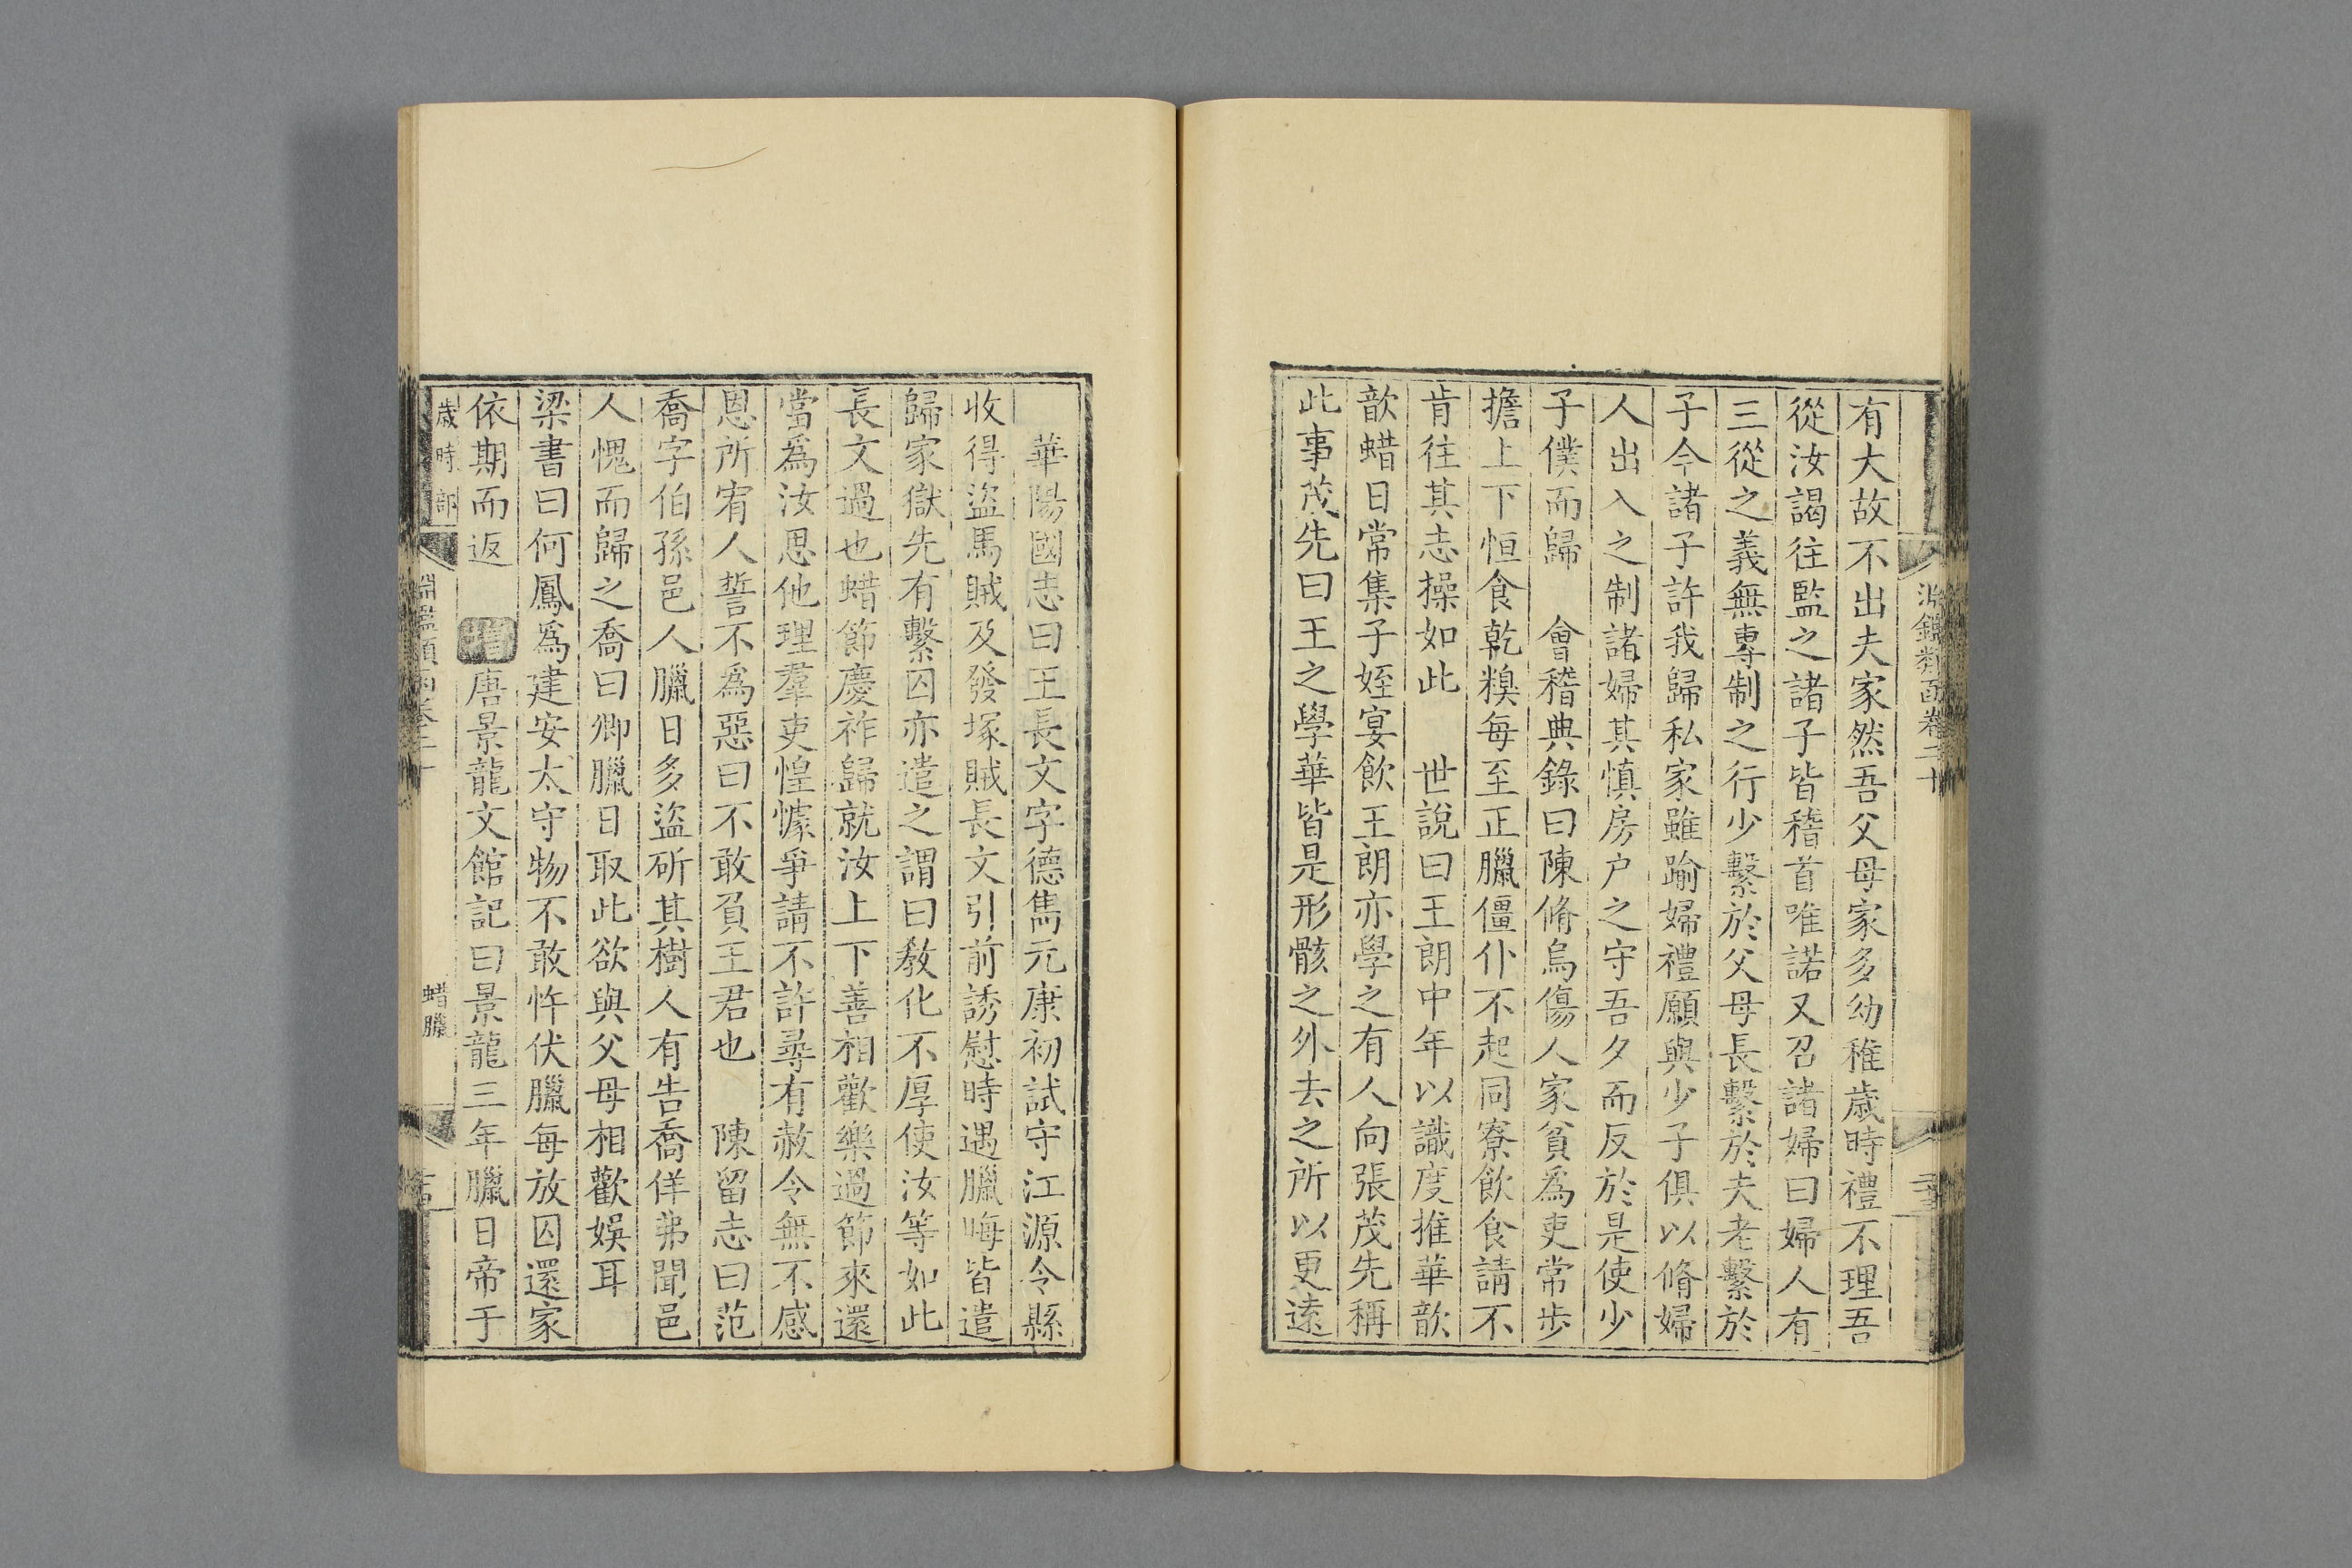 淵鑑類函卷二十
有大故不出夫家然吾父母家多幼稚歲時禮不理吾
從汝謁往監之諸子皆稽首唯諾又召諸婦曰婦人有
三從之義無專制之行少繫於父母長繫於夫老繫於
子今諸子許我歸私家雖踰婦禮願與少子俱以脩婦
人出入之制諸婦其慎房户之守吾夕而反於是使少
子僕而歸　會稽典錄曰陳脩烏傷人家貧爲吏常步
擔上下恒食乾糗每至正臘僵仆不起同寮飲食請不
肯往其志操如此　世說曰王朗中年以識度推華歆
歆蜡日常集子姪宴飲王朗亦學之有人向張茂先稱
此事茂先曰王之學華皆是形骸之外去之所以更遠
華陽國志曰王長文字德雋元康初試守江源令縣
收得盜馬賊及發塚賊長文引前誘慰時遇臘晦皆遣
歸家獄先有繫囚亦遣之謂曰教化不厚使汝等如此
長文過也蜡節慶祚歸就汝上下善相歡樂過節來還
當爲汝思他理羣吏惶懅爭請不許尋有赦令無不感
恩所宥人誓不爲惡曰不敢負王君也　陳留志曰范
喬字伯孫邑人臘日多盜斫其樹人有告喬佯弗聞邑
人愧而歸之喬曰卿臘日取此欲與父母相歡娛耳
梁書曰何鳳爲建安太守物不敢忤伏臘每放囚還家
依期而返　增唐景龍文館記曰景龍三年臘日帝于
歲時部
淵鑑類函卷二十
蜡臘